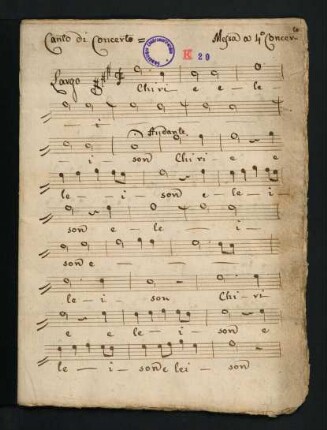 Canto di Concerto = Messa a 4º Concer-
K 29
Largo
Chi ri e e le
- i -
Andante
- i - son Chi ri e e
le - i - son e le i
son e - le - i -
son e - - -
le - i - son Chi - ri
e e le - i - son e
le - i - son e lei - son